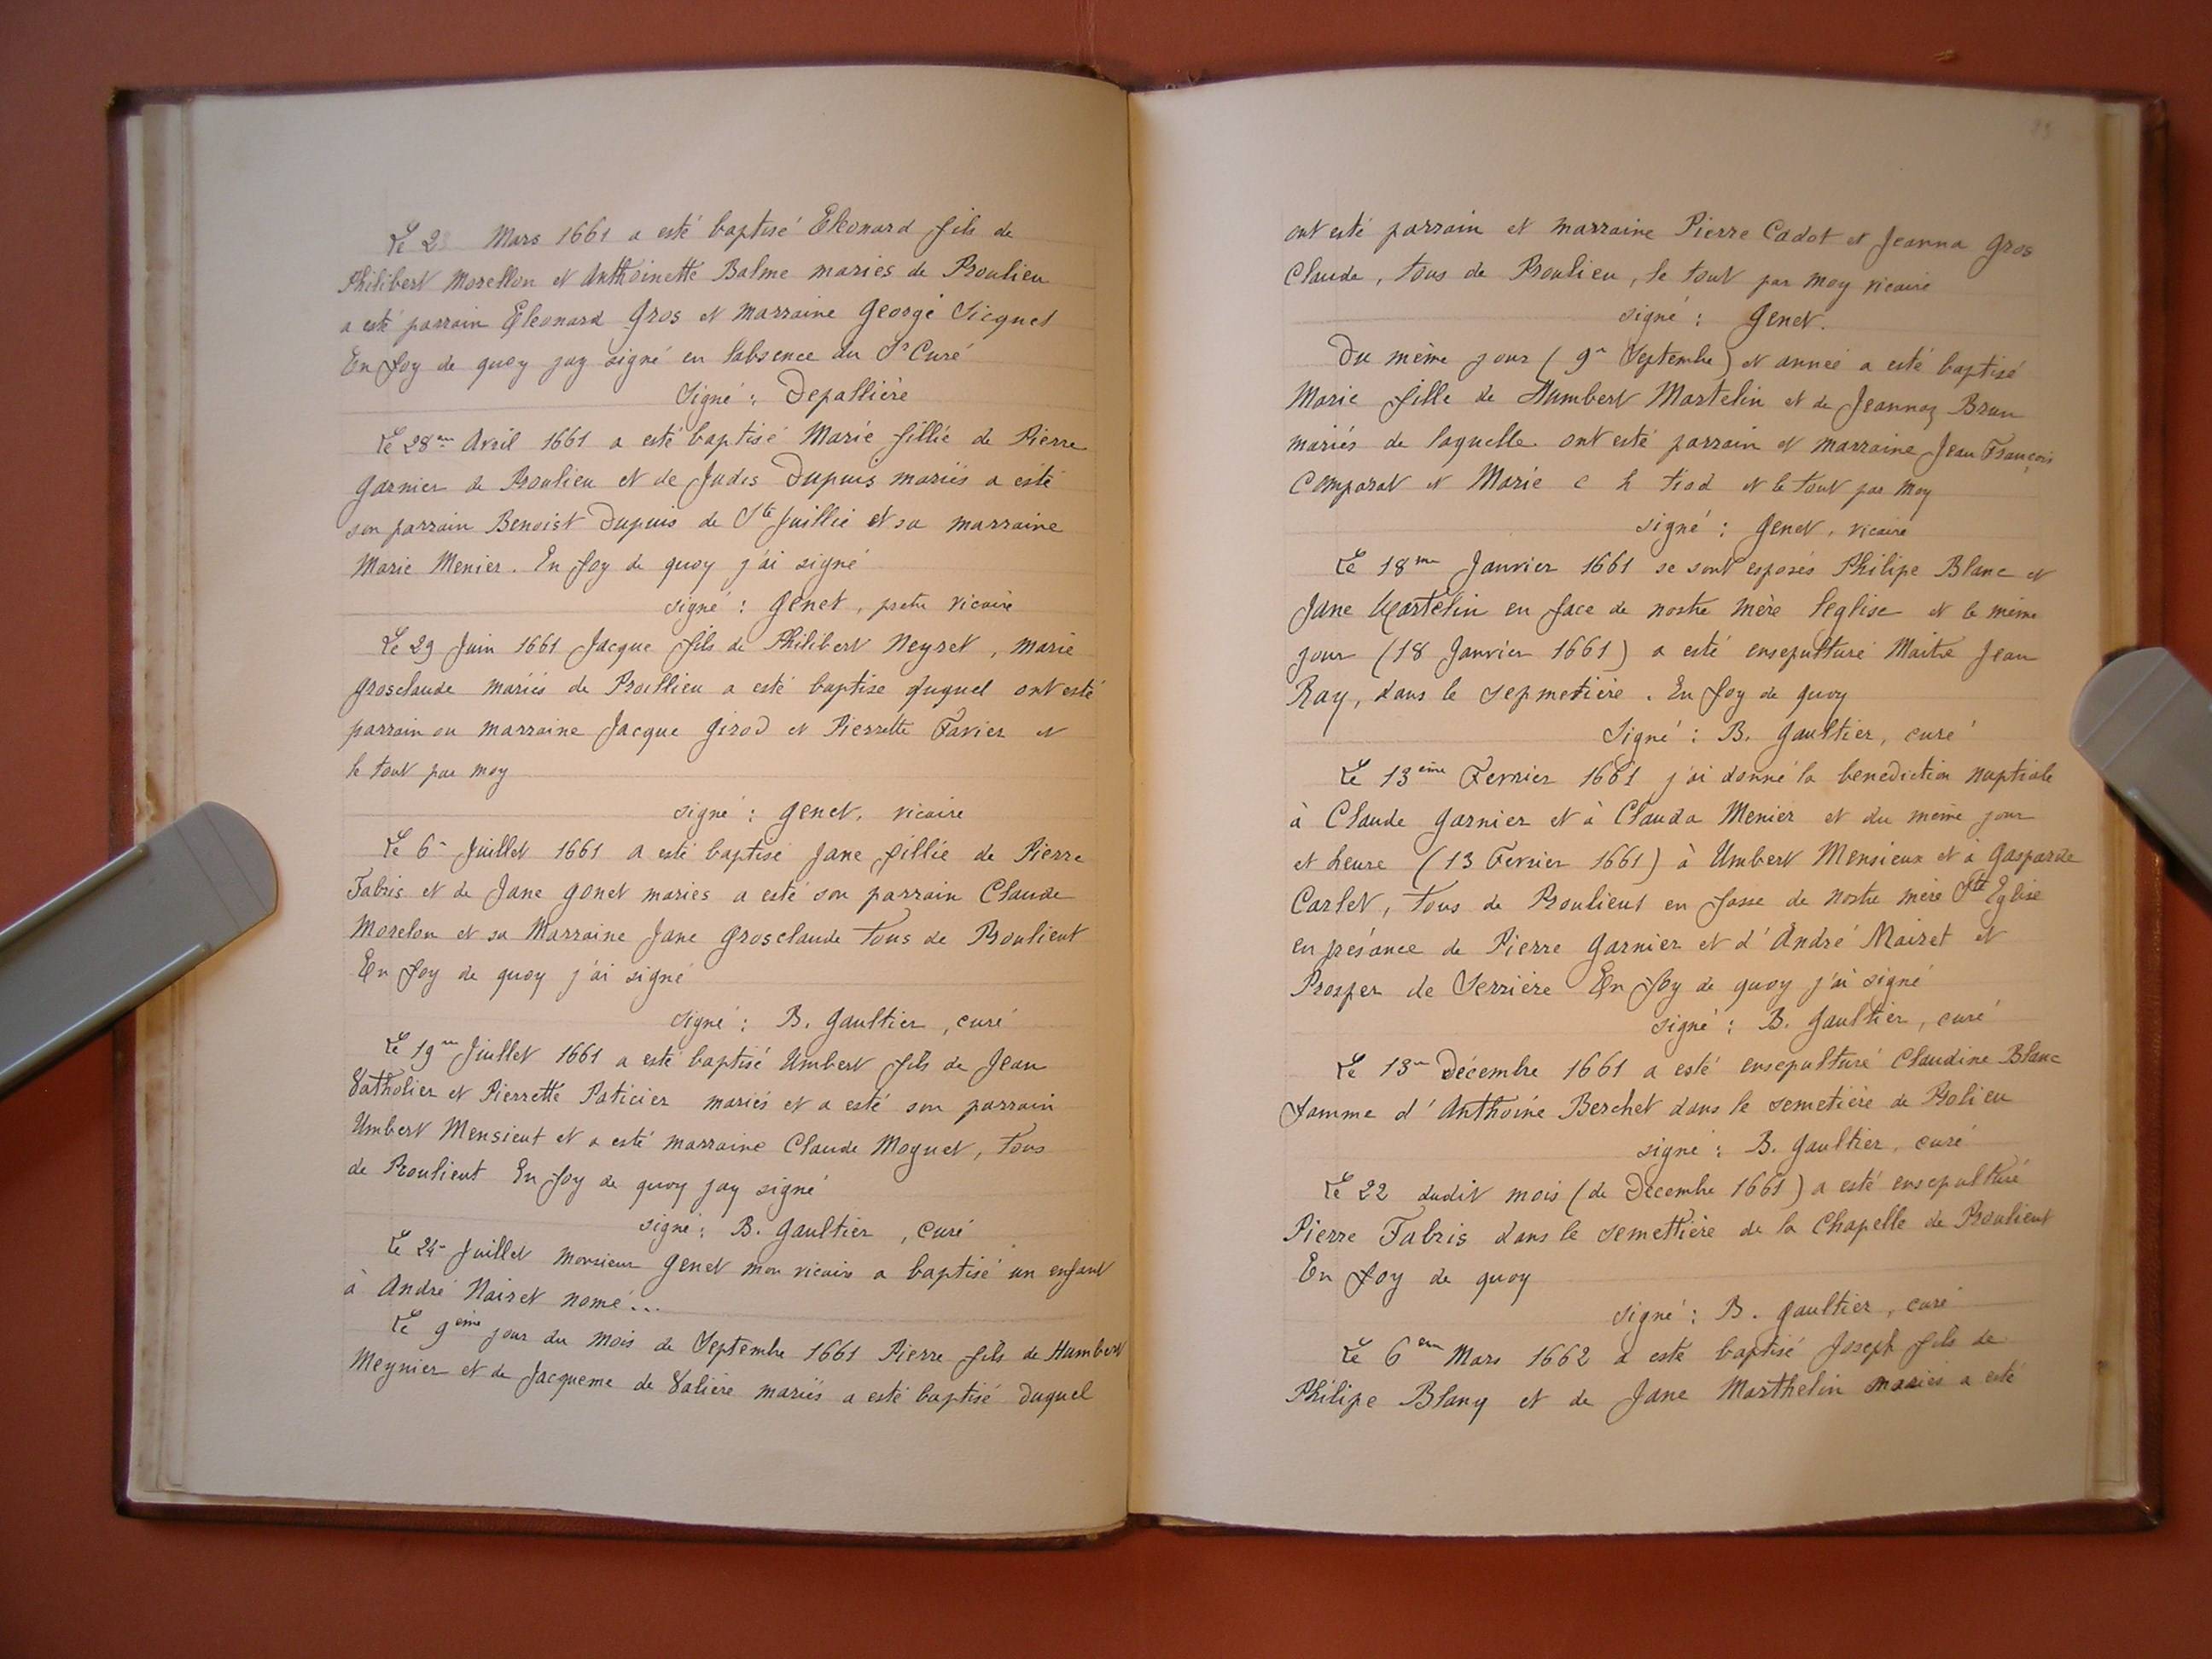 Le 2 Mars 1661 a esté baptisé Eleonard fils de
Philibert Morellon et Anthoinette Balme mariés de Proulieu
a esté parrain Eleonard Gros et marraine George Sicquet
En foy de quoy jay signé en l'absence du Sr Curé
Signé : Depallière
Le 28em Avril 1661 a esté baptisé Marie fillie de Pierre
Garnier de Proulieu et de Judis Dupuis mariés a esté
son parrain Benoist Dupuis de Ste Juillie et sa marraine
Marie Menier. En foy de quoy j'ai signé
signé : Genet, prete vicaire
Le 29 Juin 1661 Jacque fils de Philibert Neyret, Marie
Grosclaude mariés de Proillieu a esté baptise duquel ont esté
parrain ou marraine Jacque Girod et Pierrette Favier et
le tout par moy
signé : Genet, vicaire
Le 6e Juillet 1661 a esté baptisé Jane fillie de Pierre
Fabris et de Jane Gonet mariés a esté son parrain Claude
Morelon et sa Marraine Jane Grosclaude tous de Proulieut
En foy de quoy j'ai signé
signé : B. Gaultier, curé
Le 19em Juillet 1661 a esté baptisé Umbert fils de Jean
Vatholier et Pierrette Paticier mariés et a esté son parrain
Umbert Mensieut et a esté marraine Claude Moguet, tous
de Proulieut En foy de quoy jay signé
signé : B. Gaultier, curé
Le 24e Juillet monsieur Genet mon vicaire a baptisé un enfant
à André Nairet nomé...
Le 9ème jour du mois de Septembre 1661 Pierre fils de Humbert
Meynier et de Jacqueme de Valière mariés a esté baptisé duquel
ont esté parrain et marraine Pierre Cadot et Jeanna Gros
Claude, tous de Proulieu, le tout par moy vicaire
signé : Genet.
Du même jour (9e Septembre) et année a esté baptisé
Marie fille de Humbert Martelin et de Jeannaz Brun
mariés de laquelle ont esté parrain et marraine Jean François
Comparat et Marie c h tiod et le tout par moy
signé : Genet, vicaire
Le 18me Janvier 1661 se sont esposés Philipe Blanc et
Jane Martelin en face de nostre mère l'eglise et le même
jour (18 Janvier 1661) a esté ensepulturé Maitre Jean
Ray, dans le sepmetière. En foy de quoy
Signé : B. Gaultier, curé
Le 13ème Fevrier 1661 j'ai donné la benediction nuptiale
à Claude Garnier et à Clauda Menier et du même jour
et heure (13 Fevrier 1661) à Umbert Mensieux et à Gasparde
Carlet, tous de Proulieut en fasse de nostre mère Ste Eglise
en présance de Pierre Garnier et d'André Nairet et
Prosper de Serrière En foy de quoy j'ai signé
signé : B. Gaultier, curé
Le 13e Décembre 1661 a esté ensepulturé Claudine Blanc
famme d'Anthoine Berchet dans le semetière de Prolieu
signé : B. Gaultier, curé
Le 22 dudit mois (de Décembre 1661) a esté ensepulturé
Pierre Fabris dans le semettière de la Chapelle de Proulieut
En foy de quoy
signé : B. Gaultier, curé
Le 6em Mars 1662 a esté baptisé Joseph fils de
Philipe Blanq et de Jane Marthelin mariés a esté